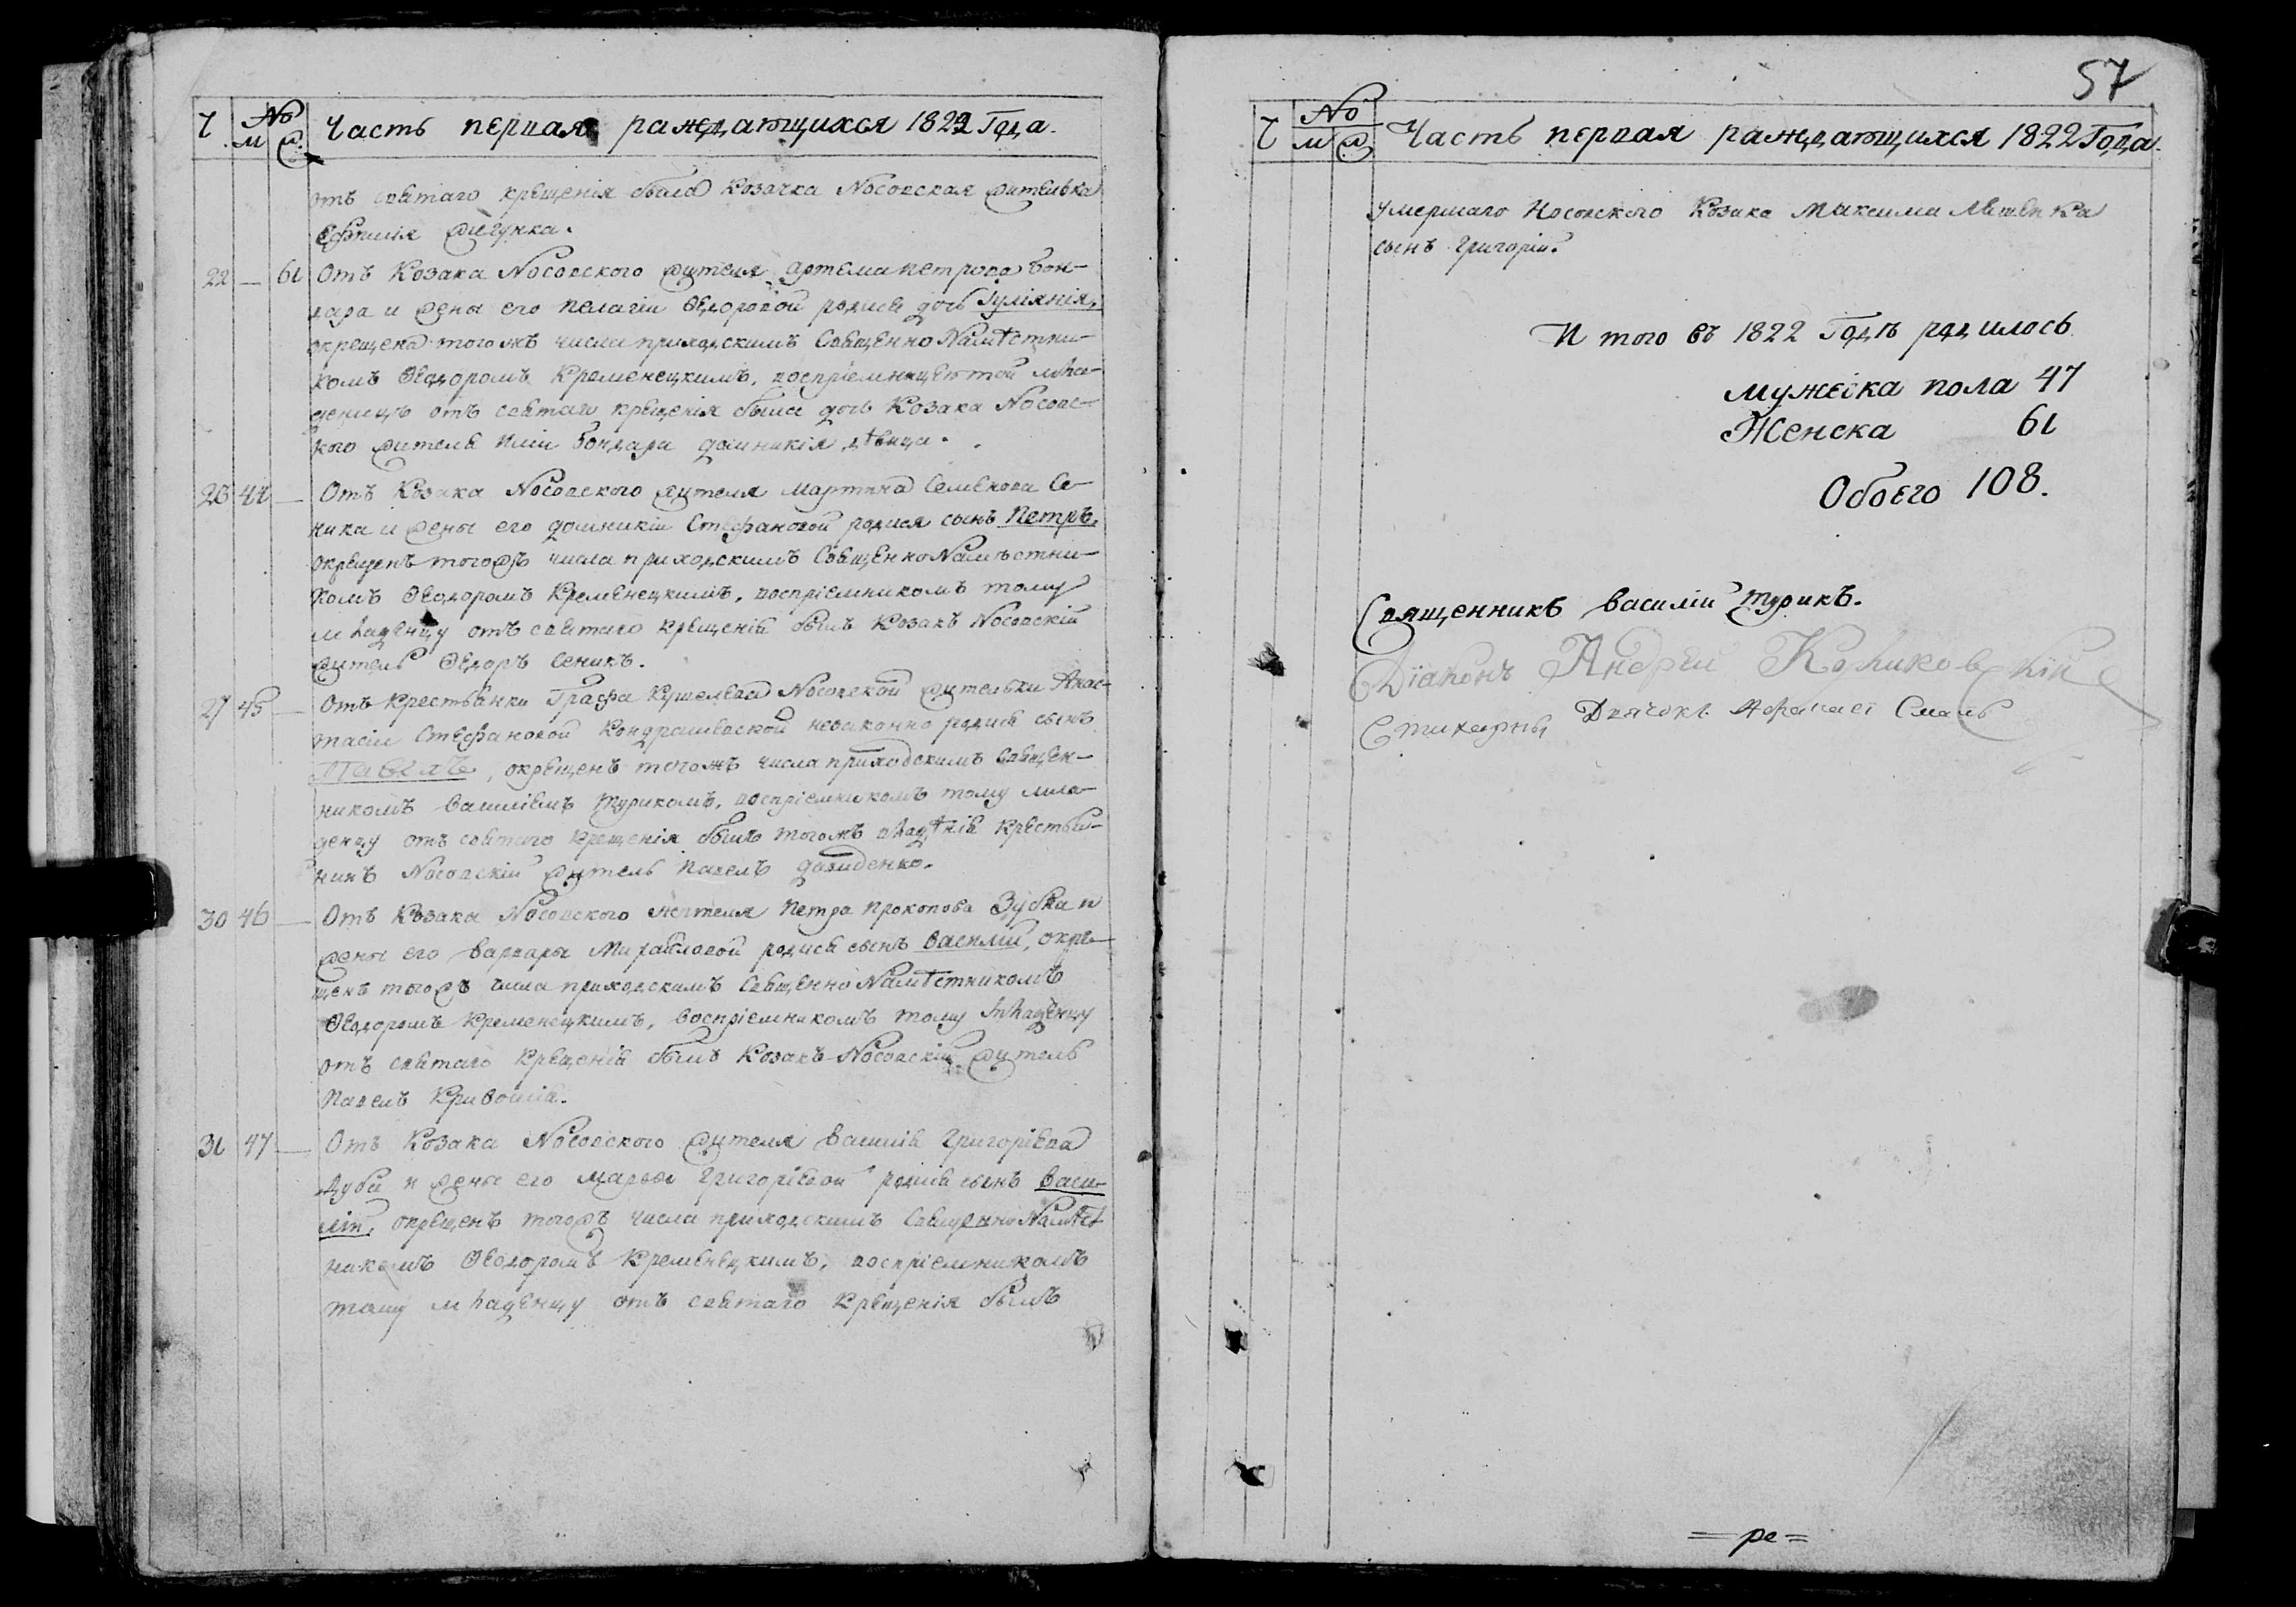 Ч № м ж Часть первая раждающихся 1822 Года.
отъ святаго крещенія была Козачка Носовская жителька
Ефимія
22 — 61 Отъ Козака Носовского жителя Артема Петрова Бон-
даря и жены его Пелагіи Ѳедоровой родися дочь Іуліянія,
окрещена тогожъ числа приходскимъ Священно Намѣстни-
комъ Ѳеодоромъ Кременецкимъ, воспріемницею той мла-
деницѣ отъ святаго крещенія была дочь Козака Носовс-
кого жителя Бондаря Домникія дѣвица.
23 44 — Отъ Козака Носовского жителя Мартина Семенова Се-
ника и жены его Домникіи Стефановой родися сынъ Петръ,
окрещенъ тогожъ числа приходскимъ Священно Намѣстни-
комъ Ѳеодоромъ Кременецкимъ, воспріемникомъ тому
младенцу отъ святаго крещенія былъ Козакъ Носовскій
житель Ѳедоръ Сеникъ.
27 45 — Отъ Крестьянки Графа Кушелева Носовской жительки Анас-
тасіи Стефановой Кондрашевской незаконно родися сынъ
Павелъ, окрещенъ тогожъ числа приходскимъ Священ-
никомъ Василіемъ Турикомъ, воспріемникомъ тому мла-
денцу отъ святаго крещенія былъ тогожъ владѣнія Крестья-
нинъ Носовскій житель Павелъ Давиденко.
30 46 — Отъ Козака Носовского жителя Петра Прокопова Зубка и
жены его Варвары Михайловой родися сынъ Василій, окре-
щенъ тогожъ числа приходскимъ Священно Намѣстникомъ
Ѳеодоромъ Кременецкимъ, воспріемникомъ тому младенцу
отъ святаго крещенія былъ Козакъ Носовскій житель
Павелъ Кривошія.
31 47 — Отъ Козака Носовского жителя Василія Григоріева
и жены его Марѳы Григоріевой родися сынъ Васи-
лій, окрещенъ тогожъ числа приходскимъ Священно Намѣст
никомъ Ѳеодоромъ Кременецкимъ, воспріемникомъ
тому младенцу отъ святаго крещенія былъ
57
Ч № м ж Часть первая раждающихся 1822 Года.
умершаго Носовского Козака Максима
сынъ Григорій.
И того въ 1822 Годѣ родилось
мужеска пола 47
Женска 61
Обоего 108.
Священникъ Василій Турикъ.
Діаконъ Андрей
Стихарный Дьячокъ Афанасі Смаль
=ре=